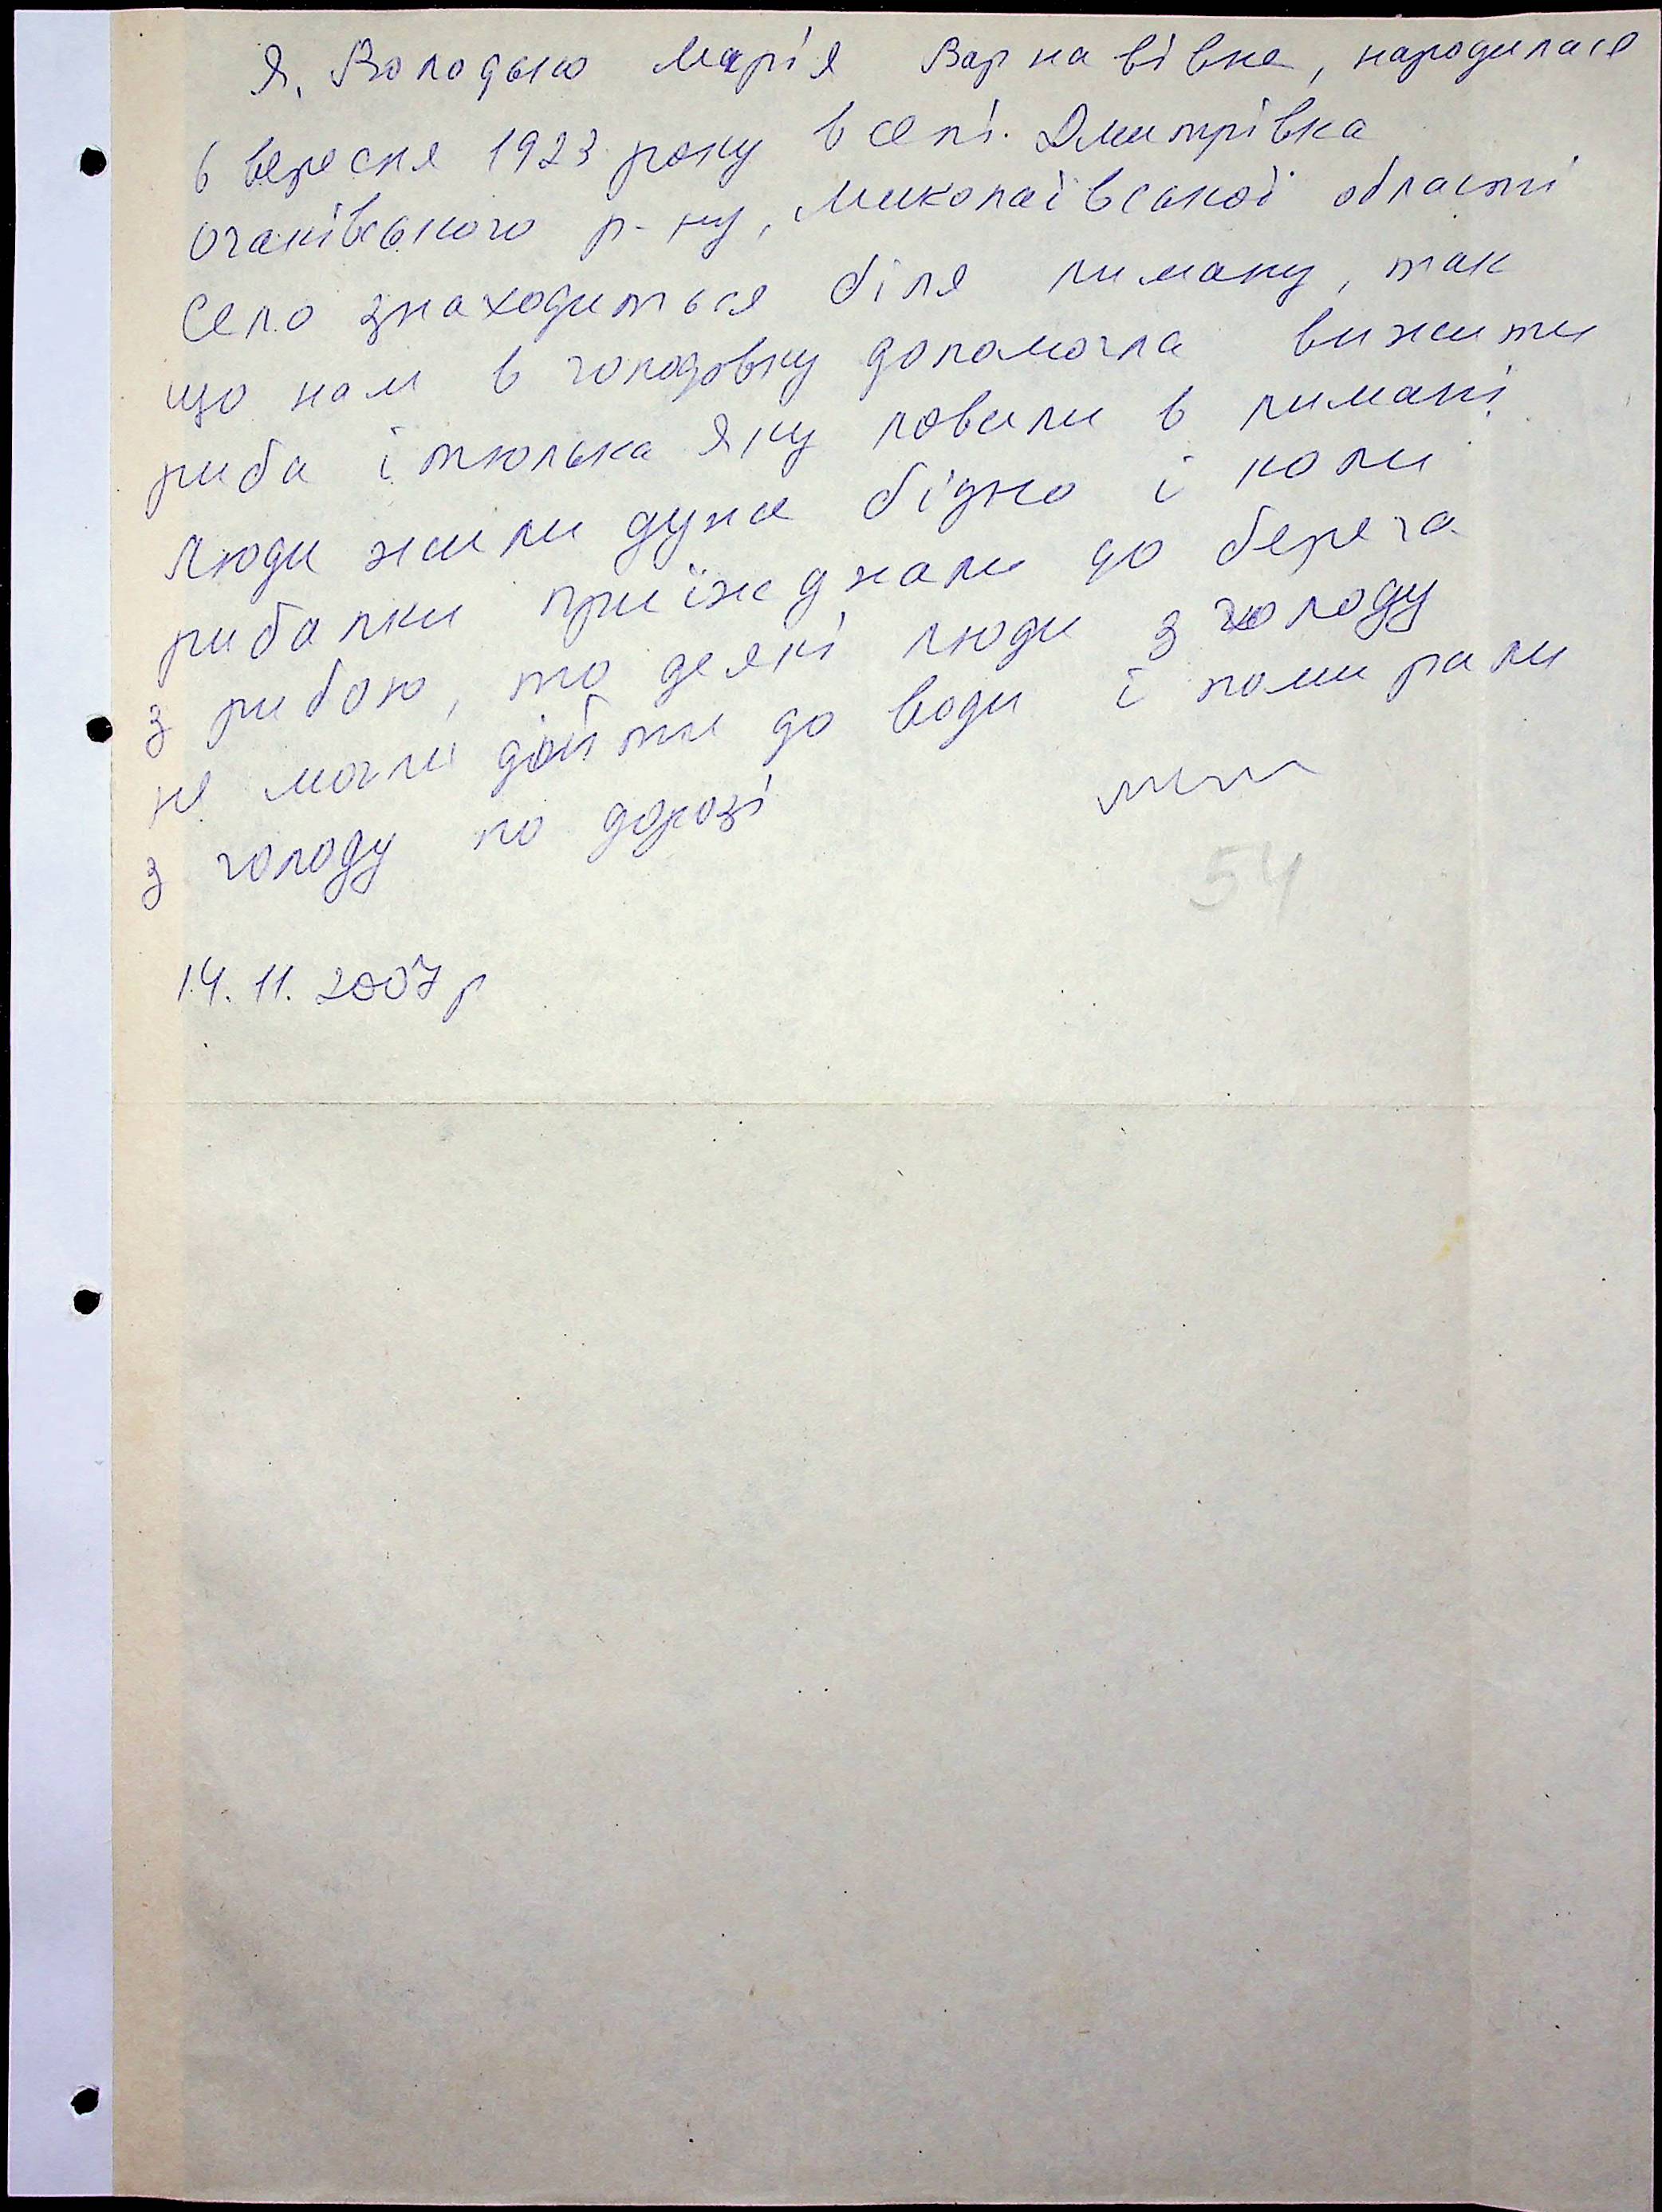 Я, Володько Марія Варнавівна, народилася
6 вересня 1923 року в селі. Дмитрівка
Очаківського р-ну, Миколаївської області
Село знаходиться біля лиману, так
що нам в голодовку допомогла вижити
риба і тюлька яку ловили в лимані.
Люди жили дуже бідно і коли
рибалки приїжджали до берега
з рибою, то деякі люди з голоду
не могли дойти до води і помирали
з голоду по дорозі
54
14.11.2007р